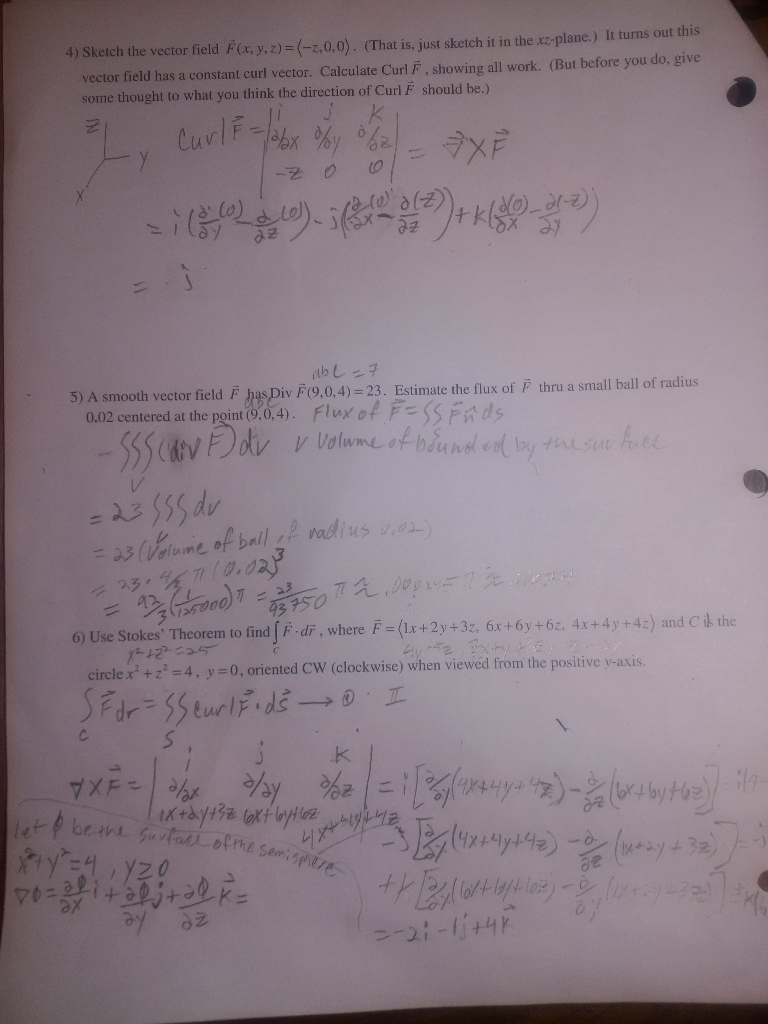 4) Sketch the vector field F⃗(x, y, z) = ⟨−z,0,0⟩. (That is, just sketch it in the xz-plane.) It turns out this
vector field has a constant curl vector. Calculate Curl F⃗, showing all work. (But before you do, give
some thought to what you think the direction of Curl F⃗ should be.)
z
y
x
Curl F⃗ = | i j k
∂/∂x ∂/∂y ∂/∂z
-z 0 0 | = ∇⃗ X F⃗
= i(∂(0)/∂y - ∂(0)/∂z) - j(∂(0)/∂x - ∂(-z)/∂z) + k(∂(0)/∂x - ∂(-z)/∂y)
= - j
abc = 7
5) A smooth vector field F⃗ has Div F⃗(9,0,4) = 23. Estimate the flux of F⃗ thru a small ball of radius
abc
0.02 centered at the point (9,0,4). Flux of F⃗ = ∫∫ F⃗ n̂ ds
- ∫∫∫ (div F⃗) dv v Volume of bounded by the surface
V
= 23 ∫∫∫ dv
V
= 23 (Volume of ball of radius 0.02)
= 23 · 4/3 π (0.02)³
= 92/3 (1/125000) π = 23/93750 π ≈
6) Use Stokes' Theorem to find ∫ F⃗ · dr⃗, where F⃗ = ⟨1x+2y+3z, 6x+6y+6z, 4x+4y+4z⟩ and C is the
C
x²+z²=25
circle x² + z² = 4, y = 0, oriented CW (clockwise) when viewed from the positive y-axis.
∫ F⃗ dr = ∫∫ curl F⃗ · ds⃗ → ① · II
C S
∇ X F⃗ = | i j k
∂/∂x ∂/∂y ∂/∂z
1x+2y+3z 6x+6y+6z 4x+4y+4z | = i [∂/∂y (4x+4y+4z) - ∂/∂z (6x+6y+6z)]
- j [∂/∂x (4x+4y+4z) - ∂/∂z (1x+2y+3z)]
+ k [∂/∂x (6x+6y+6z) - ∂/∂y (1x+2y+3z)]
= -2i - 1j + 4k⃗
Let ϕ be the surface of the semisphere
x²+y²=4, y≥0
∇ϕ = ∂ϕ/∂x i + ∂ϕ/∂y j + ∂ϕ/∂z k⃗ =